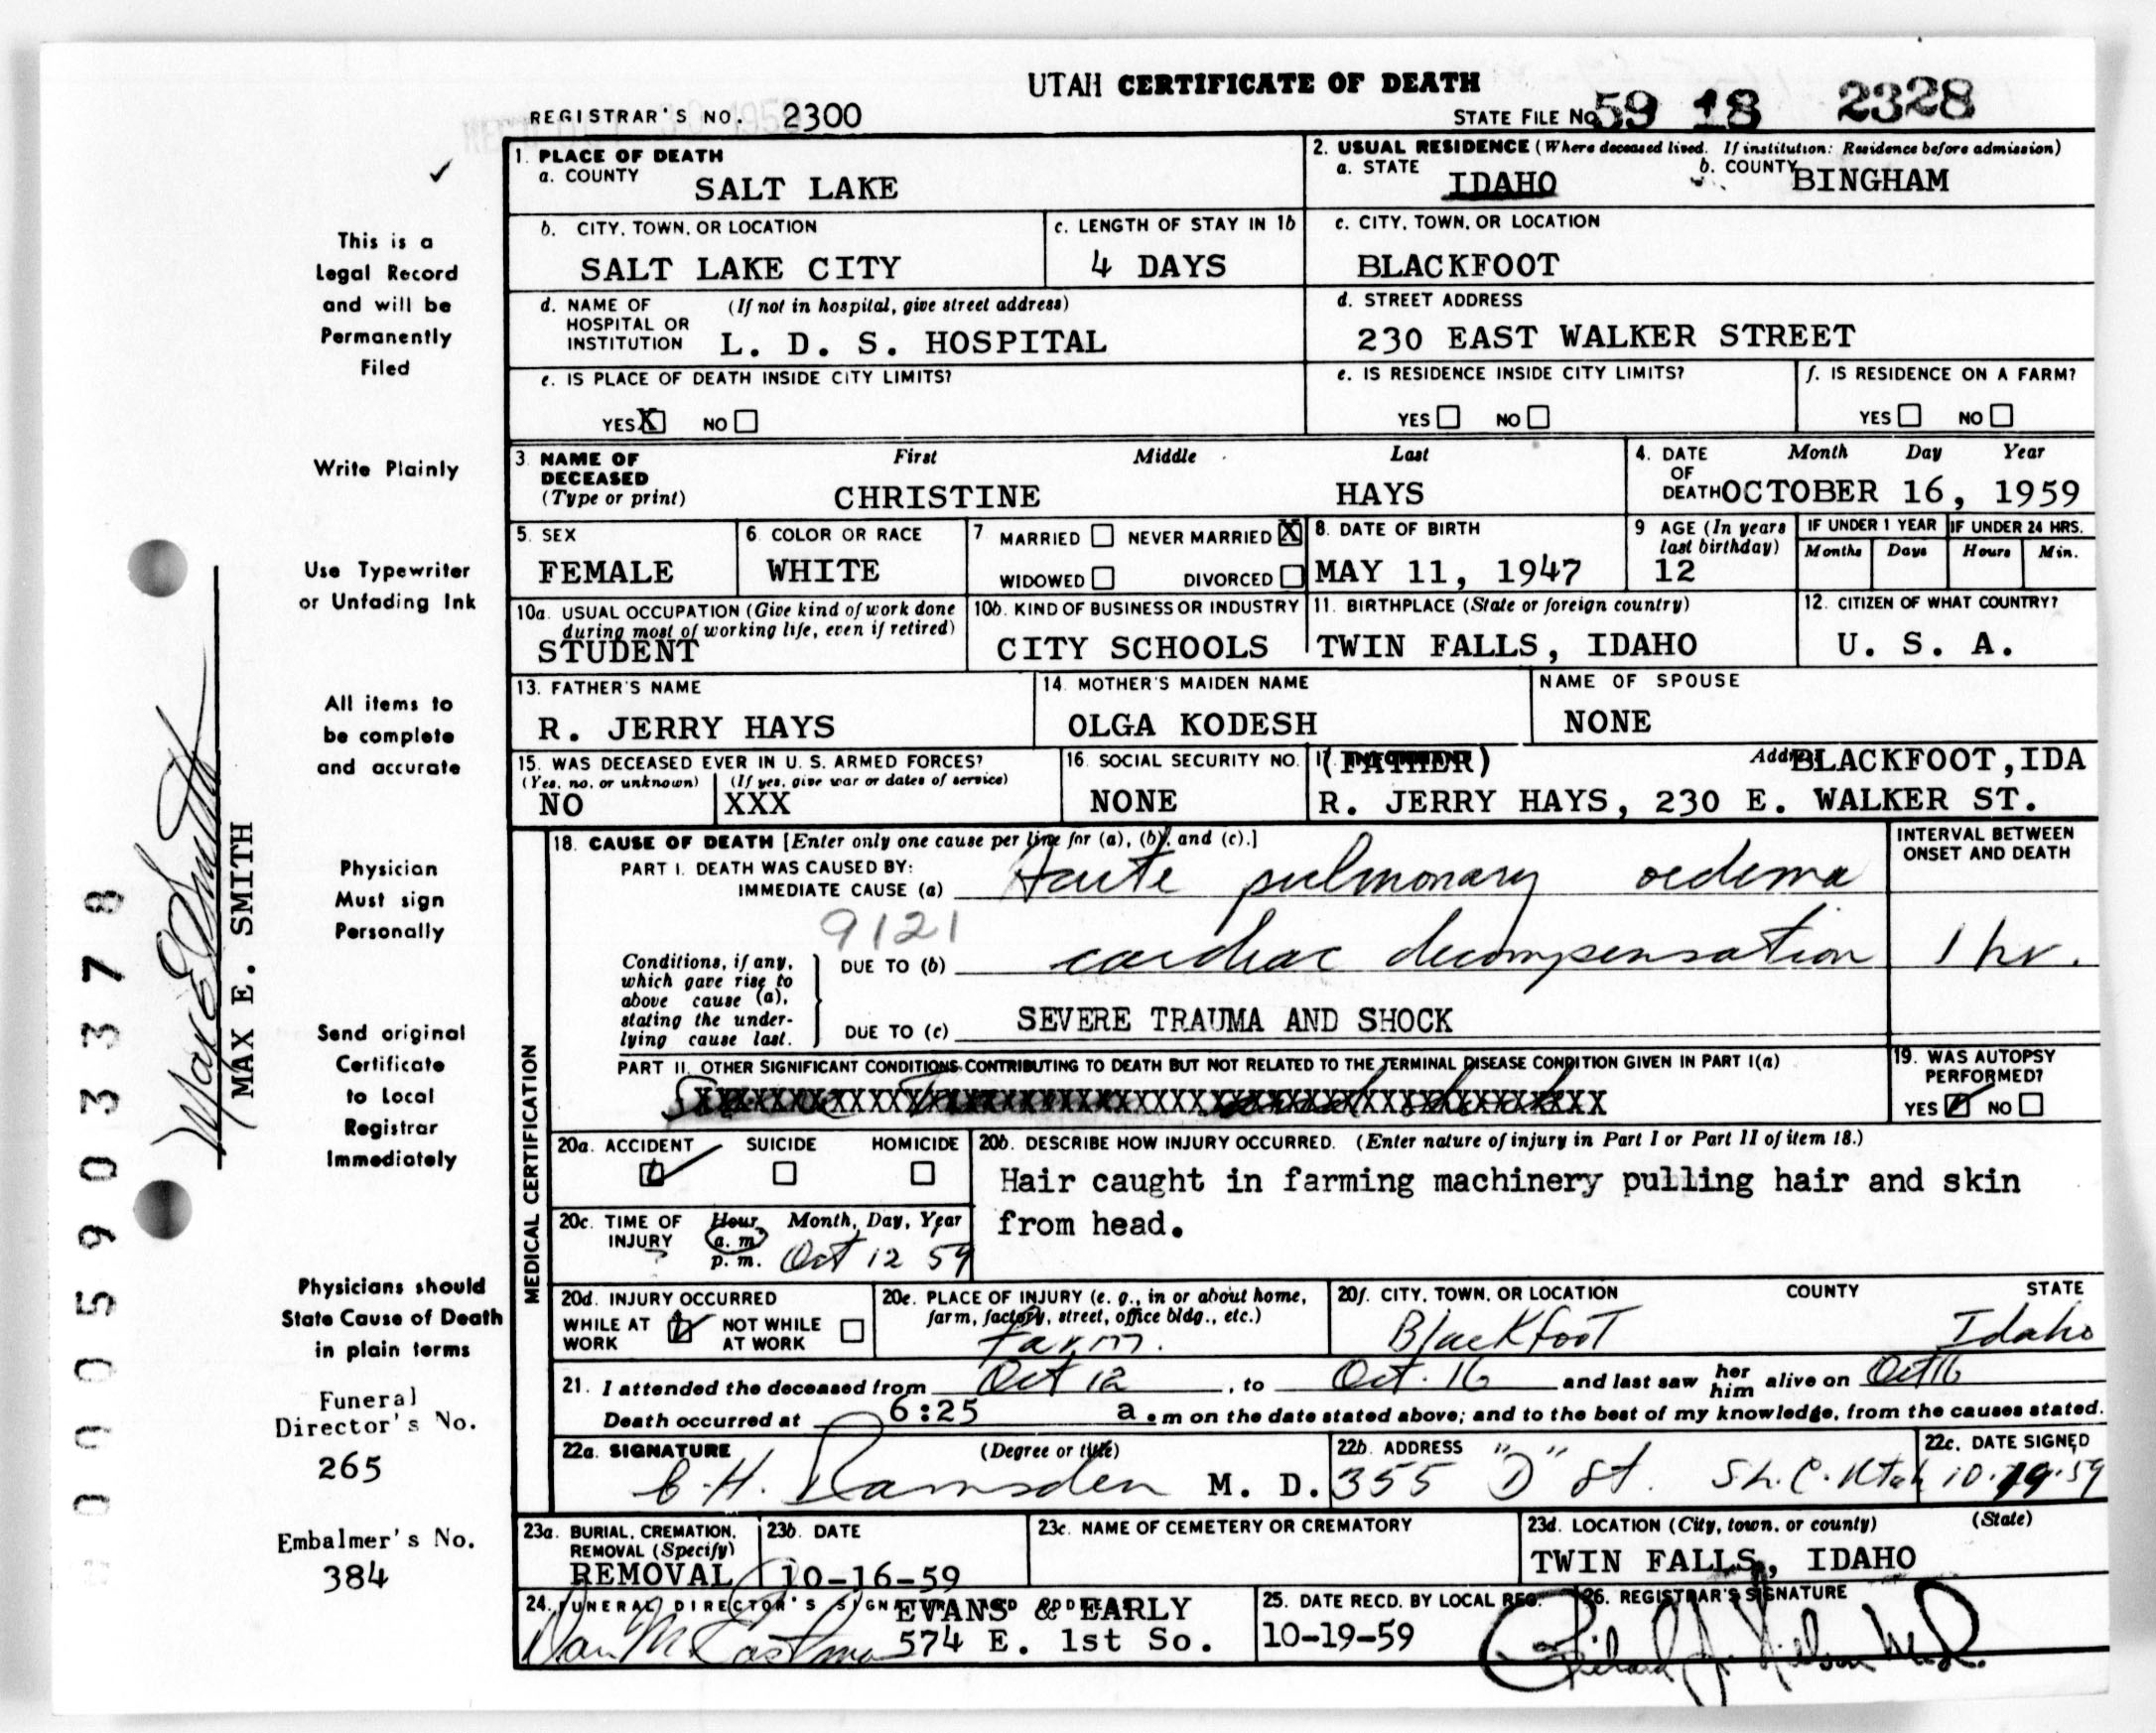 UTAH CERTIFICATE OF DEATH
REGISTRAR'S NO. 2300
STATE FILE NO. 59 18 2328
1. PLACE OF DEATH
a. COUNTY SALT LAKE
2. USUAL RESIDENCE (Where deceased lived. If institution: Residence before admission)
a. STATE IDAHO b. COUNTY BINGHAM
b. CITY, TOWN, OR LOCATION SALT LAKE CITY
c. LENGTH OF STAY IN 1b 4 DAYS
c. CITY, TOWN, OR LOCATION BLACKFOOT
d. NAME OF HOSPITAL OR INSTITUTION (If not in hospital, give street address) L. D. S. HOSPITAL
d. STREET ADDRESS 230 EAST WALKER STREET
e. IS PLACE OF DEATH INSIDE CITY LIMITS?
YES X NO
e. IS RESIDENCE INSIDE CITY LIMITS?
YES NO
f. IS RESIDENCE ON A FARM?
YES NO
3. NAME OF DECEASED (Type or print) First Middle Last
CHRISTINE HAYS
4. DATE OF DEATH Month Day Year
OCTOBER 16, 1959
5. SEX FEMALE
6. COLOR OR RACE WHITE
7 MARRIED NEVER MARRIED X
WIDOWED DIVORCED
8. DATE OF BIRTH MAY 11, 1947
9 AGE (In years last birthday) 12
IF UNDER 1 YEAR Months Days
IF UNDER 24 HRS. Hours Min.
10a. USUAL OCCUPATION (Give kind of work done during most of working life, even if retired) STUDENT
10b. KIND OF BUSINESS OR INDUSTRY CITY SCHOOLS
11. BIRTHPLACE (State or foreign country) TWIN FALLS, IDAHO
12. CITIZEN OF WHAT COUNTRY? U. S. A.
13. FATHER'S NAME R. JERRY HAYS
14. MOTHER'S MAIDEN NAME OLGA KODESH
NAME OF SPOUSE NONE
15. WAS DECEASED EVER IN U. S. ARMED FORCES?
(Yes, no, or unknown) (If yes, give war or dates of service)
NO XXX
16. SOCIAL SECURITY NO. NONE
17 (FATHER) Address BLACKFOOT, IDA
R. JERRY HAYS, 230 E. WALKER ST.
MEDICAL CERTIFICATION
18. CAUSE OF DEATH [Enter only one cause per line for (a), (b), and (c).]
INTERVAL BETWEEN ONSET AND DEATH
PART I. DEATH WAS CAUSED BY:
IMMEDIATE CAUSE (a) Acute pulmonary oedema
9121
Conditions, if any, which gave rise to above cause (a), stating the underlying cause last.
DUE TO (b) cardiac decompensation 1 hr.
DUE TO (c) SEVERE TRAUMA AND SHOCK
PART II. OTHER SIGNIFICANT CONDITIONS CONTRIBUTING TO DEATH BUT NOT RELATED TO THE TERMINAL DISEASE CONDITION GIVEN IN PART I(a)
19. WAS AUTOPSY PERFORMED?
YES NO
20a. ACCIDENT SUICIDE HOMICIDE
20b. DESCRIBE HOW INJURY OCCURRED. (Enter nature of injury in Part I or Part II of item 18.)
Hair caught in farming machinery pulling hair and skin
from head.
20c. TIME OF INJURY Hour Month, Day, Year
? a. m. p. m. Oct 12 59
20d. INJURY OCCURRED
WHILE AT WORK NOT WHILE AT WORK
20e. PLACE OF INJURY (e. g., in or about home, farm, factory, street, office bldg., etc.)
Farm.
20f. CITY, TOWN, OR LOCATION COUNTY STATE
Blackfoot Idaho
21. I attended the deceased from Oct 12, to Oct. 16 and last saw her him alive on Oct 16
Death occurred at 6:25 a.m on the date stated above; and to the best of my knowledge, from the causes stated.
22a. SIGNATURE (Degree or title)
C. H. Ramsden M. D.
22b. ADDRESS 355 "D" St. S.L.C. Utah
22c. DATE SIGNED 10-19-59
23a. BURIAL, CREMATION, REMOVAL (Specify) REMOVAL
23b. DATE 10-16-59
23c. NAME OF CEMETERY OR CREMATORY
23d. LOCATION (City, town, or county) (State)
TWIN FALLS, IDAHO
24. FUNERAL DIRECTOR'S SIGNATURE AND ADDRESS
EVANS & EARLY
574 E. 1st So.
25. DATE RECD. BY LOCAL REG. 10-19-59
26. REGISTRAR'S SIGNATURE
This is a
Legal Record
and will be
Permanently
Filed
Write Plainly
Use Typewriter
or Unfading Ink
All items to
be complete
and accurate
Physician
Must sign
Personally
Send original
Certificate
to Local
Registrar
Immediately
Physicians should
State Cause of Death
in plain terms
Funeral
Director's No.
265
Embalmer's No.
384
Max E Smith
MAX E. SMITH
005903378